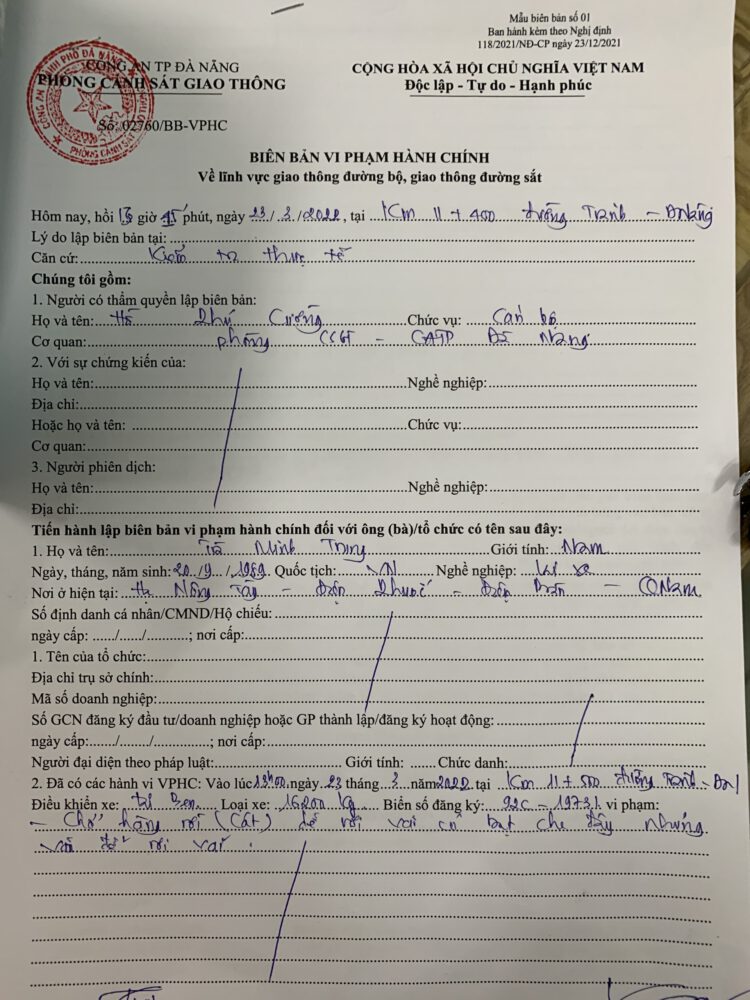 Mẫu biên bản số 01
Ban hành kèm theo Nghị định
118/2021/NĐ-CP ngày 23/12/2021
CÔNG AN TP ĐÀ NẴNG
PHÒNG CẢNH SÁT GIAO THÔNG
Số: 02760/BB-VPHC
CỘNG HÒA XÃ HỘI CHỦ NGHĨA VIỆT NAM
Độc lập - Tự do - Hạnh phúc
BIÊN BẢN VI PHẠM HÀNH CHÍNH
Về lĩnh vực giao thông đường bộ, giao thông đường sắt
Hôm nay, hồi giờ phút, ngày 23/3/2022, tại Km 11 + 400 đường Tránh - ĐNẵng
Lý do lập biên bản tại:
Căn cứ: Kiểm tra thực tế
Chúng tôi gồm:
1. Người có thẩm quyền lập biên bản:
Họ và tên: Hồ Phú Cường Chức vụ: Cán bộ
Cơ quan: phòng CSGT - CATP Đà Nẵng
2. Với sự chứng kiến của:
Họ và tên: Nghề nghiệp:
Địa chỉ:
Hoặc họ và tên: Chức vụ:
Cơ quan:
3. Người phiên dịch:
Họ và tên: Nghề nghiệp:
Địa chỉ:
Tiến hành lập biên bản vi phạm hành chính đối với ông (bà)/tổ chức có tên sau đây:
1. Họ và tên: Trà Minh Trung Giới tính: Nam
Ngày, tháng, năm sinh: 20/9/1989 Quốc tịch: VN Nghề nghiệp: Lái xe
Nơi ở hiện tại: - Điện - Điện Bàn - QNam
Số định danh cá nhân/CMND/Hộ chiếu:
ngày cấp: ....../....../............; nơi cấp:
1. Tên của tổ chức:
Địa chỉ trụ sở chính:
Mã số doanh nghiệp:
Số GCN đăng ký đầu tư/doanh nghiệp hoặc GP thành lập/đăng ký hoạt động:
ngày cấp:....../......../.............; nơi cấp:
Người đại diện theo pháp luật: Giới tính: Chức danh:
2. Đã có các hành vi VPHC: Vào lúc 13h00 ngày 23 tháng 3 năm 2022 tại Km 11 + 500 đường Tránh - ĐN
Điều khiển xe: tải Ben Loại xe: 16200 kg Biển số đăng ký: 92C - 19731 vi phạm:
- Chở hàng rời (Cát) để rơi vãi có bạt che đậy nhưng
vẫn để rơi vãi.